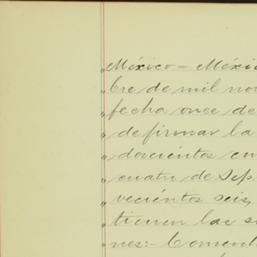 „México – Méxi
„bre de mil no
„fecha once de
„de firmar la
„doscientos cu
„cuatro de Sep
„vecientos seis,
„tienen las s
„nes:– Coment